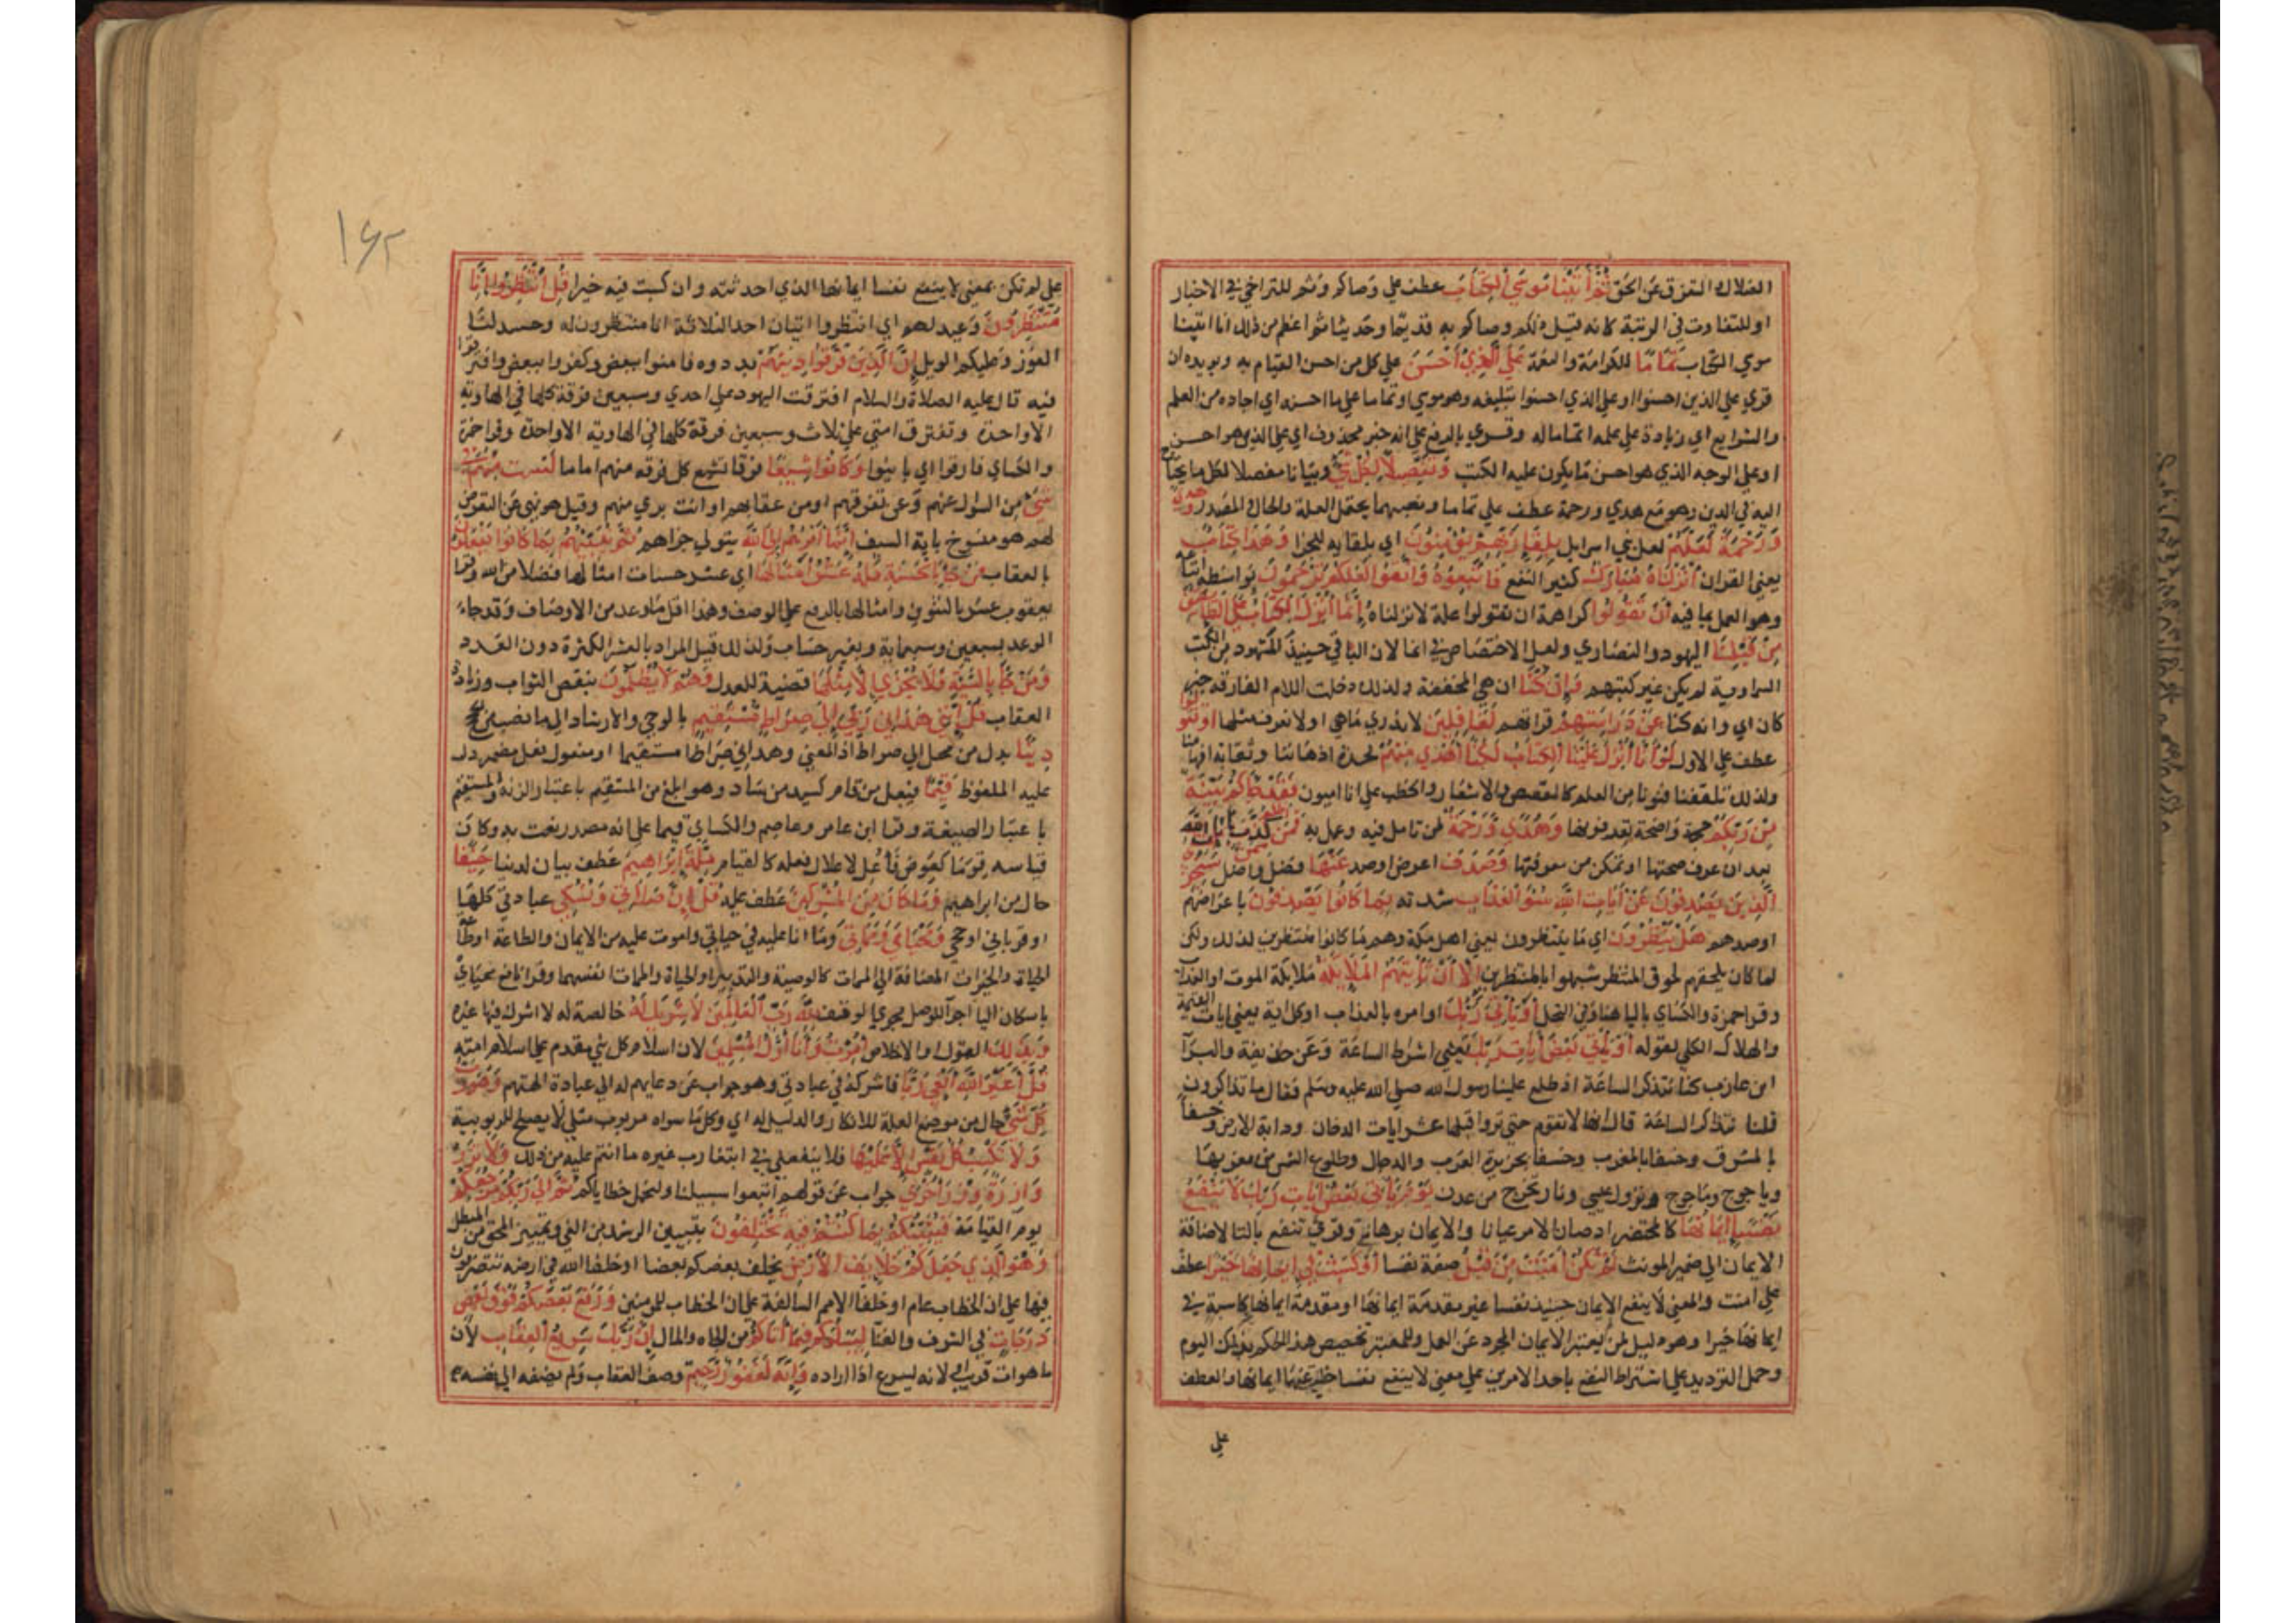 الضلال والتفرق عن الحق ثُمَّ آتَيْنَا مُوسَي الْكِتَابَ عطف علي وصاكم وثم للتراخي في الاخبار
او للتفاوت في الرتبة كانه قيل ذلكم وصاكم به قديما وحديثا ثم اعظم من ذلك انا اتينا
موسي الكتاب تَمَامًا للكرامة والنعمة عَلَي الَّذِي أَحْسَنَ علي كل من احسن القيام به ويويده ان
قري علي الذين احسنوا او علي الذي احسنوا تبليغه وهو موسي او تماما علي ما احسنه اي اجاده من العلم
والشرايع اي زيادة علي علمه اتماما له وقري بالرفع علي انه خبر محذوف اي علي الذي هو احسن
او علي الوجه الذي هو احسن ما يكون عليه الكتب وَتَفْصِيلًا لِكُلِّ شَيْءٍ وبيانا مفصلا لكل ما يحتاج
اليه في الدين وهو مع هدي ورحمة عطف علي تماما ونصبهما يحتمل العلة والحال والمصدر وَهُدًي
وَرَحْمَةً لَعَلَّهُمْ لعل بني اسرايل بِلِقَاءِ رَبِّهِمْ يُؤْمِنُونَ اي بلقايه للجزا وَهَذَا كِتَابٌ
يعني القران أَنْزَلْنَاهُ مُبَارَكٌ كثير النفع فَاتَّبِعُوهُ وَاتَّقُوا لَعَلَّكُمْ تُرْحَمُونَ بواسطة اتباعه
وهو العمل بما فيه أَنْ تَقُولُوا كراهة ان تقولوا علة لانزلناه إِنَّمَا أُنْزِلَ الْكِتَابُ عَلَي طَائِفَتَيْنِ
مِنْ قَبْلِنَا اليهود والنصاري ولعل الاختصاص في انما لان الباقي حينيذ المشهود من الكتب
السماوية لم يكن غير كتبهم وَإِنْ كُنَّا ان هي المخففة ولذلك دخلت اللام الفارقة خبر
كان اي وانه كنا عَنْ دِرَاسَتِهِمْ قراتهم لَغَافِلِينَ لا ندري ما هي او لا نعرف مثلها أَوْ تَقُولُوا
عطف علي الاول لَوْ أَنَّا أُنْزِلَ عَلَيْنَا الْكِتَابُ لَكُنَّا أَهْدَي مِنْهُمْ لحدة اذهاننا وثقابة افهامنا
ولذلك تلقفنا فنونا من العلم كالقصص والاشعار والخطب علي انا اميون فَقَدْ جَاءَكُمْ بَيِّنَةٌ
مِنْ رَبِّكُمْ حجة واضحة تعرفونها وَهُدًي وَرَحْمَةٌ لمن تامل فيه وعمل به فَمَنْ أَظْلَمُ مِمَّنْ كَذَّبَ بِآيَاتِ اللَّهِ
بعد ان عرف صحتها او تمكن من معرفتها وَصَدَفَ اعرض او صد عَنْهَا فضل واضل سَنَجْزِي
الَّذِينَ يَصْدِفُونَ عَنْ آيَاتِنَا سُوءَ الْعَذَابِ شدته بِمَا كَانُوا يَصْدِفُونَ باعراضهم
او صدهم هَلْ يَنْظُرُونَ اي ما ينتظرون يعني اهل مكة وهم ما كانوا منتظرين لذلك ولكن
لما كان يلحقهم لحوق المنتظر شبهوا بالمنتظرين إِلَّا أَنْ تَأْتِيَهُمُ الْمَلَائِكَةُ ملايكة الموت او العذاب
وقرا حمزة والكساي باليا هنا وفي النحل أَوْ يَأْتِيَ رَبُّكَ اي امره بالعذاب او كل اية يعني ايات القيمة
والهلاك الكلي لقوله أَوْ يَأْتِيَ بَعْضُ آيَاتِ رَبِّكَ يعني اشراط الساعة وعن حذيفة والبرآ
ابن عازب كنا نتذاكر الساعة اذ طلع علينا رسول الله صلي الله عليه وسلم فقال ما تذاكرون
قلنا نتذاكر الساعة قال انها لا تقوم حتي تروا قبلها عشر ايات الدخان ودابة الارض وخسفا
بالمشرق وخسفا بالمغرب وخسفا بجزيرة العرب والدجال وطلوع الشمس من مغربها
وياجوج وماجوج ونزول عيسي ونار تخرج من عدن يَوْمَ يَأْتِي بَعْضُ آيَاتِ رَبِّكَ لَا يَنْفَعُ
نَفْسًا إِيمَانُهَا كالمحتضر اذ صار الامر عيانا والايمان برهاني وقري تنفع بالتا لاضافة
الايمان الي ضمير المونث لَمْ تَكُنْ آمَنَتْ مِنْ قَبْلُ صفة نفسا أَوْ كَسَبَتْ فِي إِيمَانِهَا خَيْرًا عطف
علي امنت والمعني لا ينفع الايمان حينيذ نفسا غير مقدمة ايمانها او مقدمة ايمانها كاسبة في
ايمانها خيرا وهو دليل لمن يعتبر الايمان المجرد عن العمل وللمعتبر تخصيص هذا الحكم بذلك اليوم
وحمل الترديد علي اشتراط النفع باحد الامرين علي معني لا ينفع نفسا خلت عنها ايمانها والعطف
علي
١٦٢
علي لم تكن بمعني لا ينفع نفسا ايمانها الذي احدثته وان كسبت فيه خيرا قُلِ انْتَظِرُوا إِنَّا
مُنْتَظِرُونَ وعيد لهم اي انتظروا اتيان احد الثلاثة انا منتظرون له وحينيذ لنا
الفوز وعليكم الويل إِنَّ الَّذِينَ فَرَّقُوا دِينَهُمْ بددوه فامنوا ببعض وكفروا ببعض وافترقوا
فيه قال عليه الصلاة والسلام افترقت اليهود علي احدي وسبعين فرقة كلها في الهاوية
الا واحدة وتفترق امتي علي ثلاث وسبعين فرقة كلها في الهاوية الا واحدة وقرا حمزة
والكساي فارقوا اي باينوا وَكَانُوا شِيَعًا فرقا تشيع كل فرقة منهم اماما لَسْتَ مِنْهُمْ فِي
شَيْءٍ من السؤال عنهم وعن تفرقهم او من عقابهم او انت بري منهم وقيل هو نهي عن التعرض
لهم هو منسوخ باية السيف إِنَّمَا أَمْرُهُمْ إِلَي اللَّهِ يتولي جزاهم ثُمَّ يُنَبِّئُهُمْ بِمَا كَانُوا يَفْعَلُونَ
بالعقاب مَنْ جَاءَ بِالْحَسَنَةِ فَلَهُ عَشْرُ أَمْثَالِهَا اي عشر حسنات امثالها فضلا من الله وقرا
يعقوب عشر بالتنوين وامثالها بالرفع علي الوصف وهذا اقل ما وعد من الاوصاف وقد جاء
الوعد بسبعين وسبعماية وبغير حساب ولذلك قيل المراد بالعشر الكثرة دون العدد
وَمَنْ جَاءَ بِالسَّيِّئَةِ فَلَا يُجْزَي إِلَّا مِثْلَهَا قضية للعدل وَهُمْ لَا يُظْلَمُونَ بنقص الثواب وزيادة
العقاب قُلْ إِنَّنِي هَدَانِي رَبِّي إِلَي صِرَاطٍ مُسْتَقِيمٍ بالوحي والارشاد الي ما نصب من الحجج
دِينًا بدل من محل الي صراط اذ المعني وهداني صراطا مستقيما او مفعول فعل مضمر دل
عليه الملفوظ قِيَمًا فيعل من قام كسيد من ساد وهو ابلغ من المستقيم باعتبار الزنة والمستقيم
باعتبار الصيغة وقرا ابن عامر وعاصم والكساي قيما علي انه مصدر نعت به وكان
قياسه قوما كعوض فأعل لاعلال فعله كالقيام مِلَّةَ إِبْرَاهِيمَ عطف بيان لدينا حَنِيفًا
حال من ابراهيم وَمَا كَانَ مِنَ الْمُشْرِكِينَ عطف عليه قُلْ إِنَّ صَلَاتِي وَنُسُكِي عبادتي كلها
او قرباني او حجي وَمَحْيَايَ وَمَمَاتِي وما انا عليه في حياتي واموت عليه من الايمان والطاعة او طاعات
الحياة والخيرات المضافة الي الممات كالوصية والتدبير او الحياة والممات انفسهما وقرا نافع محياي
باسكان اليا اجرآ للوصل مجري الوقف لِلَّهِ رَبِّ الْعَالَمِينَ لَا شَرِيكَ لَهُ خالصة له لا اشرك فيها غيره
وَبِذَلِكَ القول او الاخلاص أُمِرْتُ وَأَنَا أَوَّلُ الْمُسْلِمِينَ لان اسلام كل نبي مقدم علي اسلام امته
قُلْ أَغَيْرَ اللَّهِ أَبْغِي رَبًّا فاشركه في عبادتي وهو جواب عن دعايهم له الي عبادة الهتهم وَهُوَ رَبُّ
كُلِّ شَيْءٍ حال من موضع العلة للانكار والدليل له اي وكل ما سواه مربوب مثلي لا يصلح للربوبية
وَلَا تَكْسِبُ كُلُّ نَفْسٍ إِلَّا عَلَيْهَا فلا ينفعني في ابتغا رب غيره ما انتم عليه من ذلك وَلَا تَزِرُ
وَازِرَةٌ وِزْرَ أُخْرَي جواب عن قولهم اتبعوا سبيلنا ولنحمل خطاياكم ثُمَّ إِلَي رَبِّكُمْ مَرْجِعُكُمْ
يوم القيامة فَيُنَبِّئُكُمْ بِمَا كُنْتُمْ فِيهِ تَخْتَلِفُونَ بتبيين الرشد من الغي وتمييز المحق من المبطل
وَهُوَ الَّذِي جَعَلَكُمْ خَلَائِفَ الْأَرْضِ يخلف بعضكم بعضا او خلفا الله في ارضه تتصرفون
فيها علي ان الخطاب عام او خلفا الامم السالفة علي ان الخطاب للمومنين وَرَفَعَ بَعْضَكُمْ فَوْقَ بَعْضٍ
دَرَجَاتٍ في الشرف والغنآ لِيَبْلُوَكُمْ فِيمَا آتَاكُمْ من الجاه والمال إِنَّ رَبَّكَ سَرِيعُ الْعِقَابِ لان
ما هو ات قريب او لانه يسرع اذا اراده وَإِنَّهُ لَغَفُورٌ رَحِيمٌ وصف العقاب ولم يضفه الي نفسه